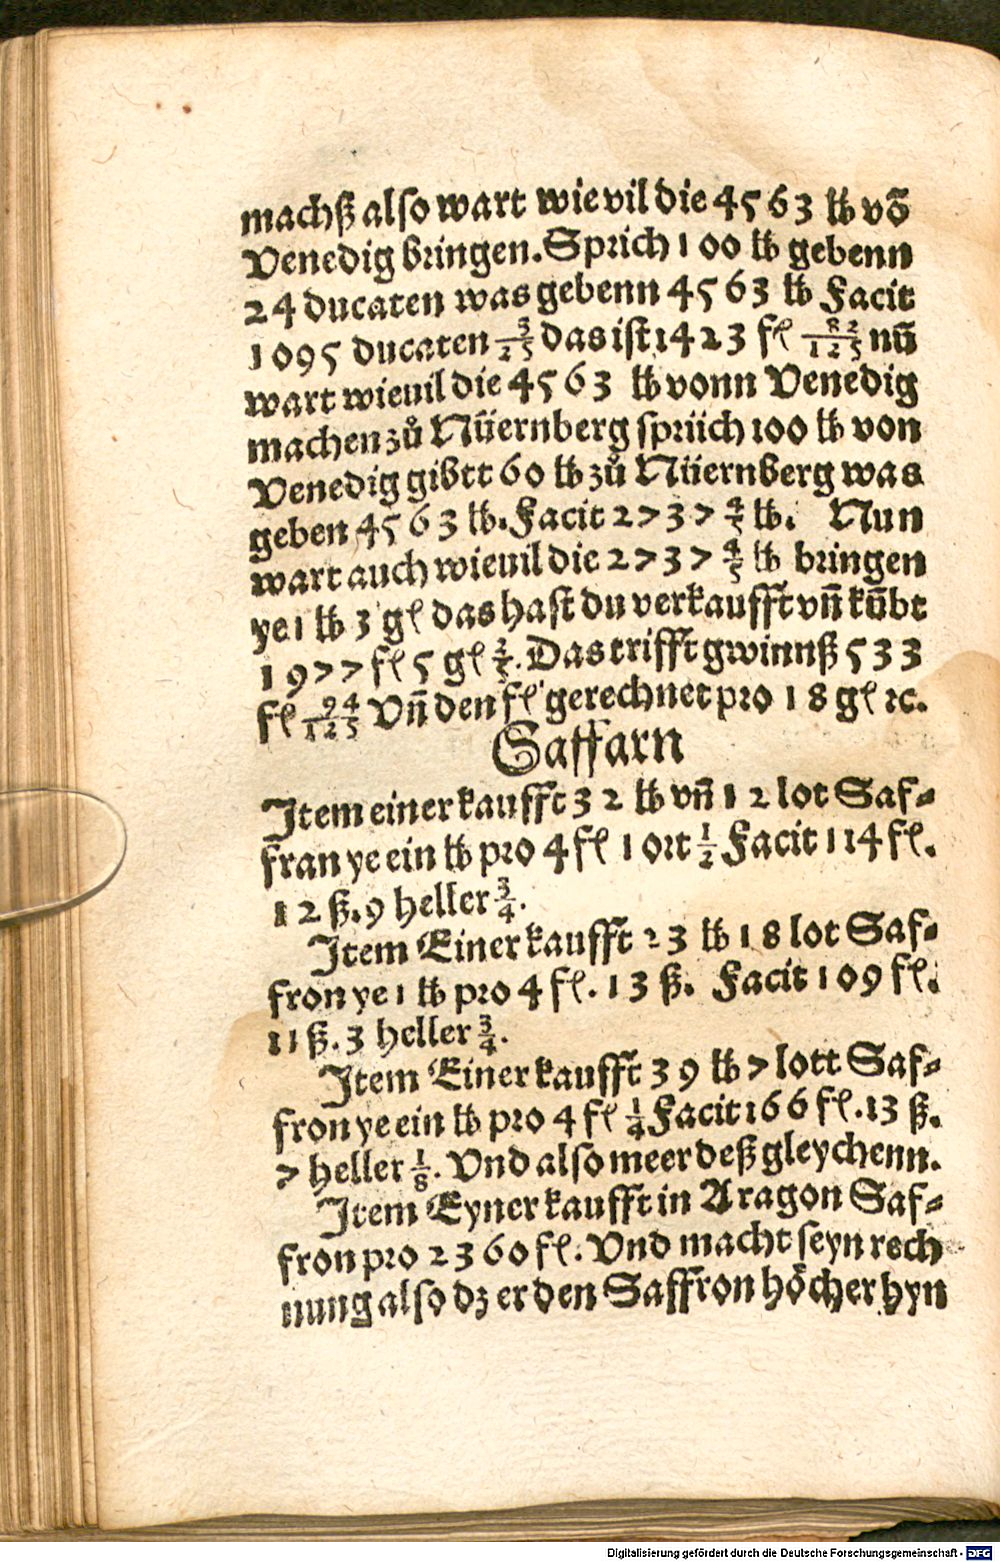 machß also wart wie vil die 4563 ℔ võ
Venedig bringen. Sprich 100 ℔ gebenn
24 ducaten was gebenn 4563 ℔ Facit
1095 ducaten 3/25 das ist 1423 fl 82/125 nũ
wart wieuil die 4563 ℔ vonn Venedig
machen zů Nüernberg sprüch 100 ℔ von
Venedig gibtt 60 ℔ zů Nüernberg was
geben 4563 ℔. Facit 2737 4/5 ℔. Nun
wart auch wieuil die 2737 4/5 ℔ bringen
ye 1 ℔ 3 gl das hast du verkaufft vñ kũbt
1977 fl 5 gl 2/5. Das trifft gwinnß 533
fl 94/125 Vñ den fl gerechnet pro 18 gl ꝛc.
Saffarn
Item einer kaufft 32 ℔ vñ 12 lot Saf⸗
fran ye ein ℔ pro 4 fl 1 ort 1/2 Facit 114 fl.
12 ß. 9 heller 3/4.
Item Einer kaufft 23 ℔ 18 lot Saf⸗
fron ye 1 ℔ pro 4 fl. 13 ß. Facit 109 fl.
11 ß. 3 heller 3/4.
Item Einer kaufft 39 ℔ 7 lott Saf⸗
fron ye ein ℔ pro 4 fl 1/4 Facit 166 fl. 13 ß.
7 heller 1/8. Vnd also meer deß gleychenn.
Item Eyner kaufft in Aragon Saf⸗
fron pro 2360 fl. Vnd macht seyn rech
nung also dz er den Saffron höcher hyn
Digitalisierung gefördert durch die Deutsche Forschungsgemeinschaft - DFG